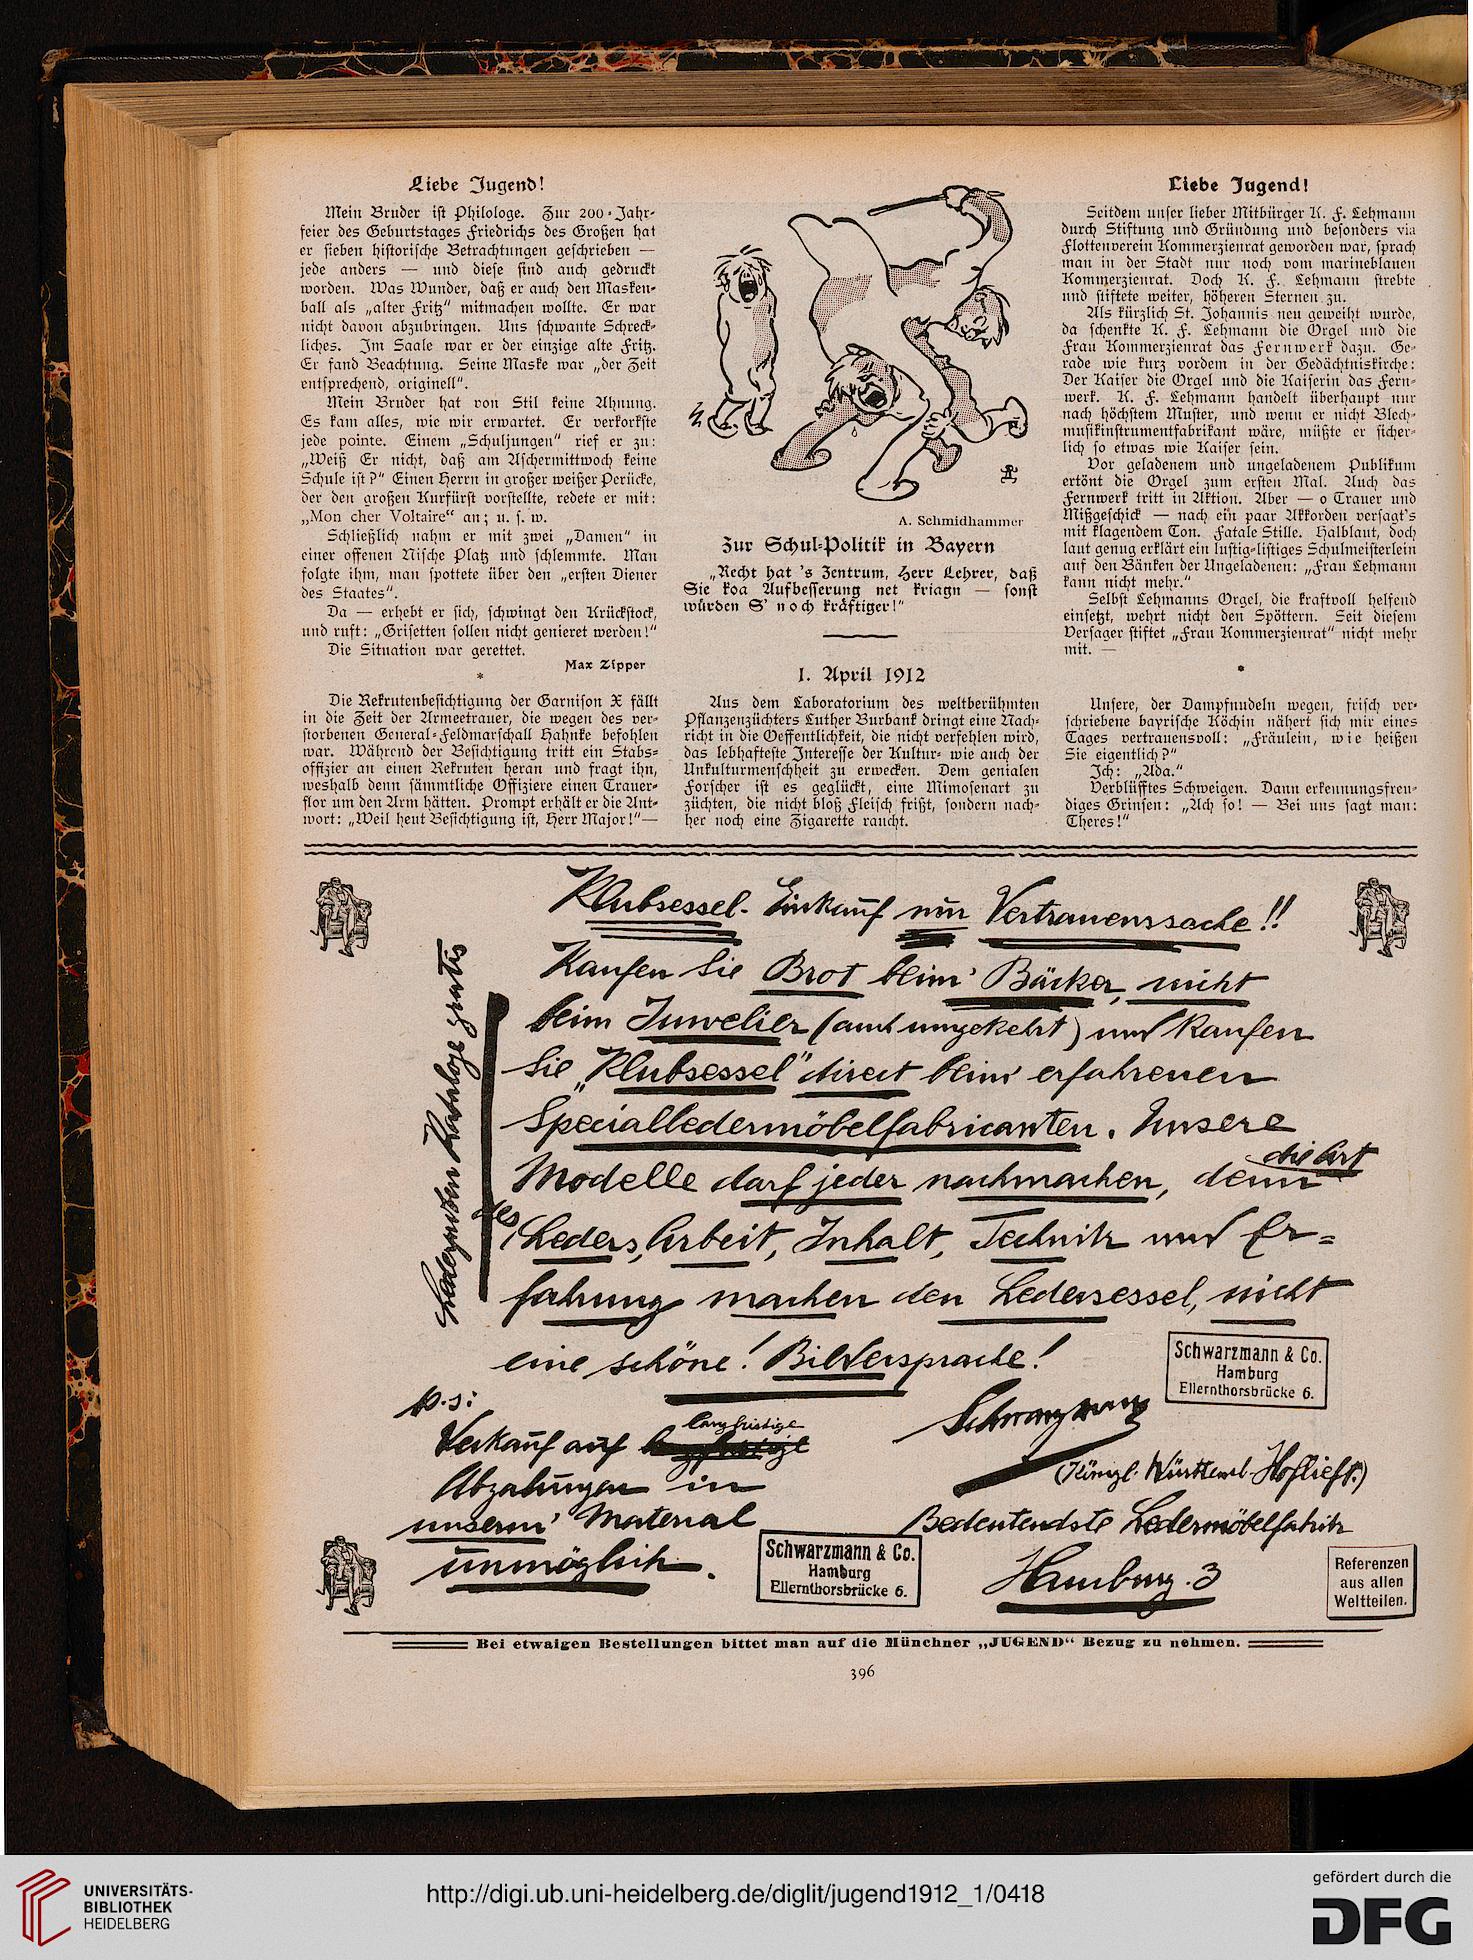 Liebe Jugend!
Mein Bruder ist Philologe. Zur 200-Jahr-
feier des Geburtstages Friedrichs des Großen hat
er sieben historische Betrachtungen geschrieben —
jede anders — und diese sind auch gedruckt
worden. Was Wunder, daß er auch den Masken-
ball als „alter Fritz“ mitmachen wollte. Er war
nicht davon abzubringen. Uns schwante Schreck-
liches. Im Saale war er der einzige alte Fritz.
Er fand Beachtung. Seine Maske war „der Zeit
entsprechend, originell“.
Mein Bruder hat von Stil keine Ahnung.
Es kam alles, wie wir erwartet. Er verkorkste
jede pointe. Einem „Schuljungen“ rief er zu:
„Weiß Er nicht, daß am Aschermittwoch keine
Schule ist?“ Einen Herrn in großer weißer Perücke,
der den großen Kurfürst vorstellte, redete er mit:
„Mon cher Voltaire“ an; u. s. w.
Schließlich nahm er mit zwei „Damen“ in
einer offenen Nische Platz und schlemmte. Man
folgte ihm, man spottete über den „ersten Diener
des Staates“.
Da — erhebt er sich, schwingt den Krückstock,
und ruft: „Grisetten sollen nicht genieret werden!“
Die Situation war gerettet.
Max Zipper
*
Die Rekrutenbesichtigung der Garnison X fällt
in die Zeit der Armeetrauer, die wegen des ver-
storbenen General-Feldmarschall Hahnke befohlen
war. Während der Besichtigung tritt ein Stabs-
offizier an einen Rekruten heran und fragt ihn,
weshalb denn sämmtliche Offiziere einen Trauer-
flor um den Arm hätten. Prompt erhält er die Ant-
wort: „Weil heut Besichtigung ist, Herr Major!“—
A. Schmidhammer
Zur Schul-Politik in Bayern
„Recht hat 's Zentrum, Herr Lehrer, daß
Sie koa Aufbesserung net kriagn — sonst
würden S' noch kräftiger!“
1. April 1912
Aus dem Laboratorium des weltberühmten
Pflanzenzüchters Luther Burbank dringt eine Nach-
richt in die Oeffentlichkeit, die nicht verfehlen wird,
das lebhafteste Interesse der Kultur- wie auch der
Unkulturmenschheit zu erwecken. Dem genialen
Forscher ist es geglückt, eine Mimosenart zu
züchten, die nicht bloß Fleisch frißt, sondern nach-
her noch eine Zigarette raucht.
Liebe Jugend!
Seitdem unser lieber Mitbürger K. F. Lehmann
durch Stiftung und Gründung und besonders via
Flottenverein Kommerzienrat geworden war, sprach
man in der Stadt nur noch vom marineblauen
Kommerzienrat. Doch K. F. Lehmann strebte
und stiftete weiter, höheren Sternen zu.
Als kürzlich St. Johannis neu geweiht wurde,
da schenkte K. F. Lehmann die Orgel und die
Frau Kommerzienrat das Fernwerk dazu. Ge-
rade wie kurz vordem in der Gedächtniskirche:
Der Kaiser die Orgel und die Kaiserin das Fern-
werk. K. F. Lehmann handelt überhaupt nur
nach höchstem Muster, und wenn er nicht Blech-
musikinstrumentfabrikant wäre, müßte er sicher-
lich so etwas wie Kaiser sein.
Vor geladenem und ungeladenem Publikum
ertönt die Orgel zum ersten Mal. Auch das
Fernwerk tritt in Aktion. Aber — o Trauer und
Mißgeschick — nach ein paar Akkorden versagt's
mit klagendem Ton. Fatale Stille. Halblaut, doch
laut genug erklärt ein lustig-listiges Schulmeisterlein
auf den Bänken der Ungeladenen: „Frau Lehmann
kann nicht mehr.“
Selbst Lehmanns Orgel, die kraftvoll helfend
einsetzt, wehrt nicht den Spöttern. Seit diesem
Versager stiftet „Frau Kommerzienrat“ nicht mehr
mit. —
*
Unsere, der Dampfnudeln wegen, frisch ver-
schriebene bayrische Köchin nähert sich mir eines
Tages vertrauensvoll: „Fräulein, wie heißen
Sie eigentlich?“
Ich: „Ada.“
Verblüfftes Schweigen. Dann erkennungsfreu-
diges Grinsen: „Ach so! — Bei uns sagt man:
Theres!“
Klubsessel-Einkauf nur Vertrauenssache!!
Kaufen Sie Brot beim Bäcker, nicht
beim Juwelier (auch umgekehrt) und kaufen
Sie „Klubsessel“ direct beim erfahrenen
Specialledermöbelfabricanten. Unsere
Modelle darf jeder nachmachen, denn die Art
des Leders, Arbeit, Inhalt, Technik und Er=
fahrung machen den Ledersessel, nicht
eine schöne! Bildersprache!
Lederproben Kataloge gratis
Schwarzmann & Co.
Hamburg
Ellernthorsbrücke 6.
p.s:
Verkauf auf langfristige
Abzahlungen in
unserm Material
unmöglich.
Schwarzmann
(Königl. Württemb. Hoflieft.)
Bedeutendste Ledermöbelfabrik
Hamburg. 3
Schwarzmann & Co.
Hamburg
Ellernthorsbrücke 6.
Referenzen
aus allen
Weltteilen.
Bei etwaigen Bestellungen bittet man auf die Münchner „JUGEND“ Bezug zu nehmen.
396
UNIVERSITÄTS-
BIBLIOTHEK
HEIDELBERG
http://digi.ub.uni-heidelberg.de/diglit/jugend1912_1/0418
gefördert durch die
DFG